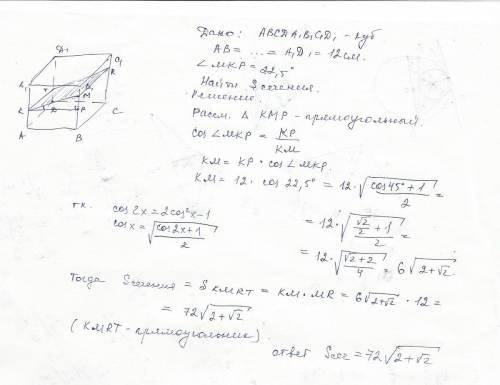 Дано: ABCDA₁B₁C₁D₁ - куб
AB = ... = A₁D₁ = 12 см.
∠MKP = 22,5°
Найти Sсечения.
Решение.
Рассм. Δ KMP - прямоугольный.
cos∠MKP = KP/KM
KM = KP · cos∠MKP.
KM = 12 · cos 22,5° = 12 · √((cos45°+1)/2) =
= 12 · √((√2/2 + 1)/2) =
= 12 · √((√2+2)/4) = 6√(2+√2)
тк. cos2x = 2cos²x-1
cosx = √((cos2x+1)/2)
Тогда Sсечения = S KMRT = KM · MR = 6√(2+√2) · 12 =
= 72√(2+√2)
(KMRT - прямоугольник)
ответ Sсеч = 72√(2+√2)
D₁
C₁
R
A₁
B₁
T
M
K
D
P
C
A
B